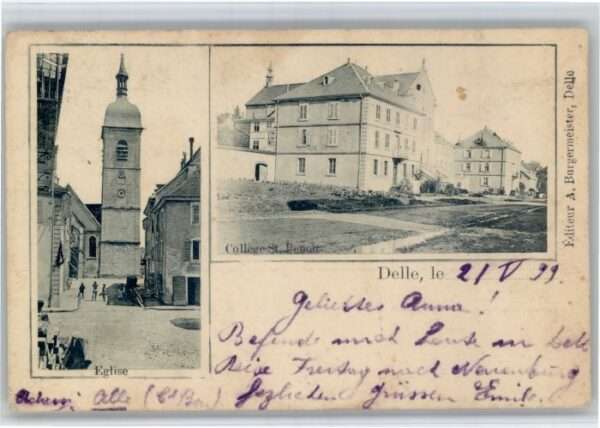 Collège St. Benoit
Editeur A. Burgermeister, Delle
Delle, le 21 V 99.
Geliebtes Anna!
Befinde mich heute in Delle
Reise Freitag nach Neuenburg
Herzlichen Grüssen Emile.
Eglise
Alle (Ct Ber.)